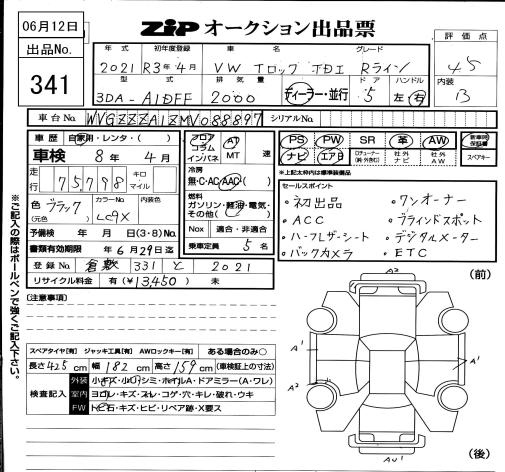 06月12日
出品No.
341
ZIP オークション出品票
評価点
4.5
内装
B
年式 初年度登録 車名 グレード
2021 R3年4月 VW Tロック TDI Rライン
型式 排気量 ドア ハンドル
3DA-A1DFF 2000 ディーラー・並行 5 左 右
車台No. WVGZZZA1ZMV088897 シリアルNo.
車歴 自家用・レンタ・( )
車検 8年 4月
走行 75,798 キロ マイル
色 ブラック カラーNo. LC9X 内装色
(元色)
予備検 年 月 日(3・8)No.
書類有効期限 年6月29日迄
登録No. 倉敷 331 と 2021
リサイクル料金 有(¥13,450) 未
フロア コラム インパネ AT MT 速
冷房
無・C・AC・AAC( )
燃料
ガソリン・軽油・電気・その他( )
Nox 適合・非適合
乗車定員 5名
PS PW SR 革 AW 新車時保証書
ナビ エアB 社外ナビ 社外AW スペアキー
*上記太枠内は標準装備品
セールスポイント
・初出品 ・ワンオーナー
・ACC ・ブラインドスポット
・ハーフレザーシート ・デジタルメーター
・バックカメラ ・ETC
(注意事項)
スペアタイヤ[有] ジャッキ工具[有] AWロックキー[有] ある場合のみ○
長さ425cm 幅182cm 高さ159cm (車検証上の寸法)
検査記入
外装 小キズ・小凹・シミ・ホイルA・ドアミラー(A・ワレ)
室内 ヨゴレ・キズ・スレ・コゲ・穴・キレ・破れ・ウキ
FW トビ石・キズ・ヒビ・リペア跡・X要ス
(前)
A2
A1
A1
A2
AU1
(後)
※ご記入の際はボールペンで強くご記入下さい。